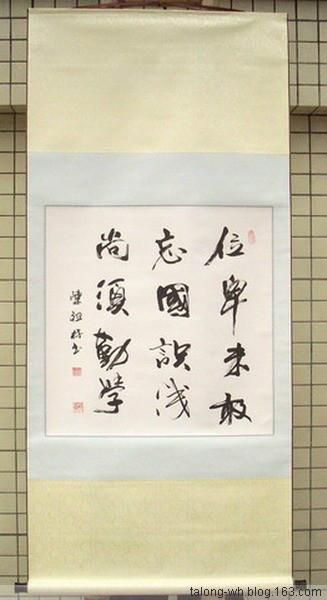 位卑未敢
忘國識浅
尚須勤學
陳祖书
talong-wh.blog.163.com